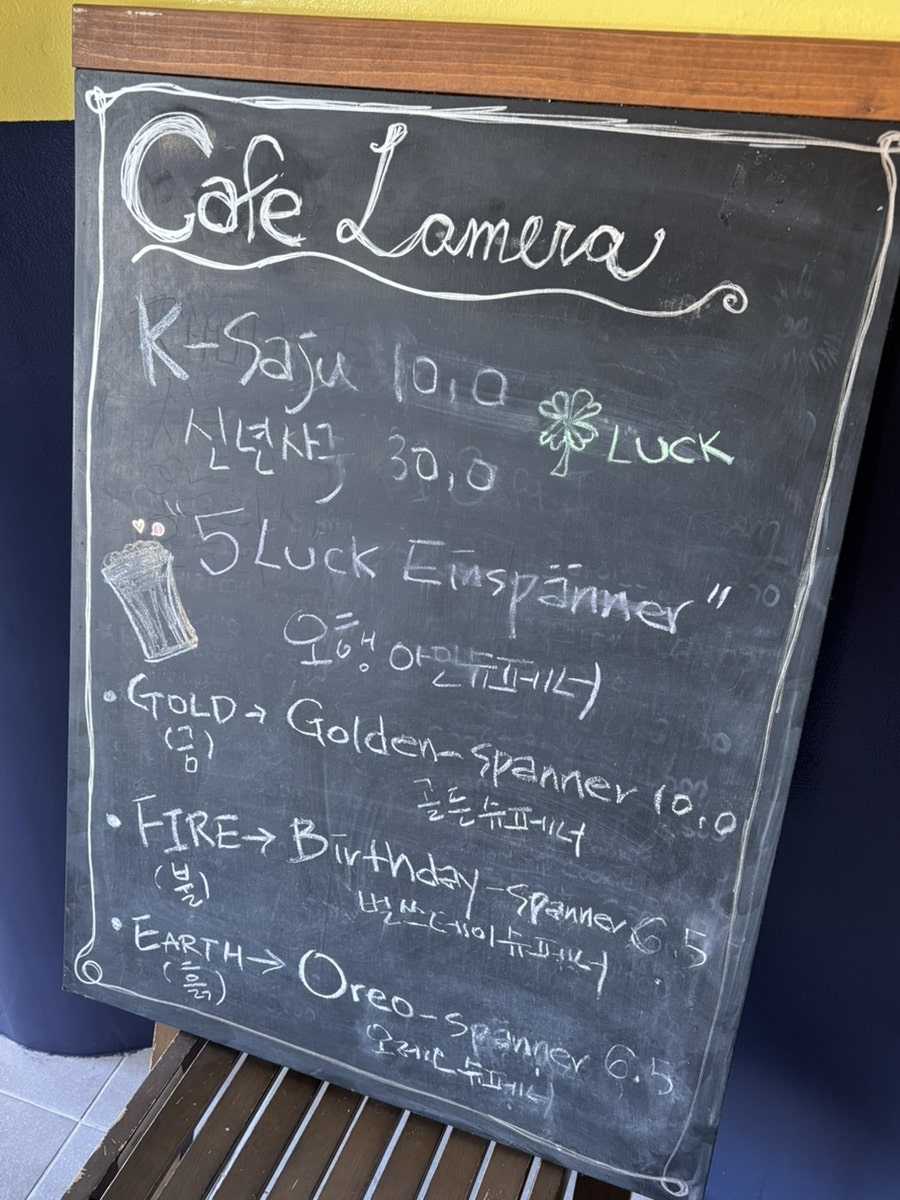 Cafe Lamera
K-Saju 10,0
신년사주 30,0
LUCK
"5 LUCK Einspänner"
오행 아인슈페너
• GOLD → Golden-spanner 10,0
(금) 골든슈페너
• FIRE → Birthday-spanner 6.5
(불) 벌쓰데이슈페너
• EARTH → Oreo-spanner 6.5
(흙) 오레오슈페너